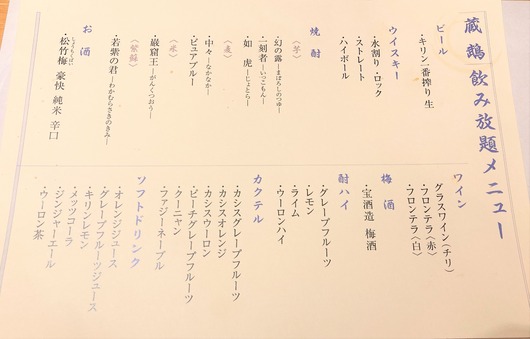 蔵鵡飲み放題メニュー
ビール
・キリン一番搾り 生
ウイスキー
・水割り・ロック
・ストレート
・ハイボール
焼酎
〈芋〉
・幻の露 ―まぼろしのつゆ―
・一刻者 ―いっこもん―
・如虎 ―じょとら―
〈麦〉
・中々 ―なかなか―
・ピュアブルー
〈米〉
・巌窟王 ―がんくつおう―
〈紫蘇〉
・若紫の君 ―わかむらさきのきみ―
お酒
しょうちくばい
・松竹梅 豪快 純米 辛口
ワイン
グラスワイン(チリ)
・フロンテラ〈赤〉
・フロンテラ〈白〉
梅酒
・宝酒造 梅酒
酎ハイ
・グレープフルーツ
・レモン
・ライム
・ウーロンハイ
カクテル
・カシスグレープフルーツ
・カシスオレンジ
・カシスウーロン
・ピーチグレープフルーツ
・クーニャン
・ファジーネーブル
ソフトドリンク
・オレンジジュース
・グレープフルーツジュース
・キリンレモン
・メッツコーラ
・ジンジャーエール
・ウーロン茶